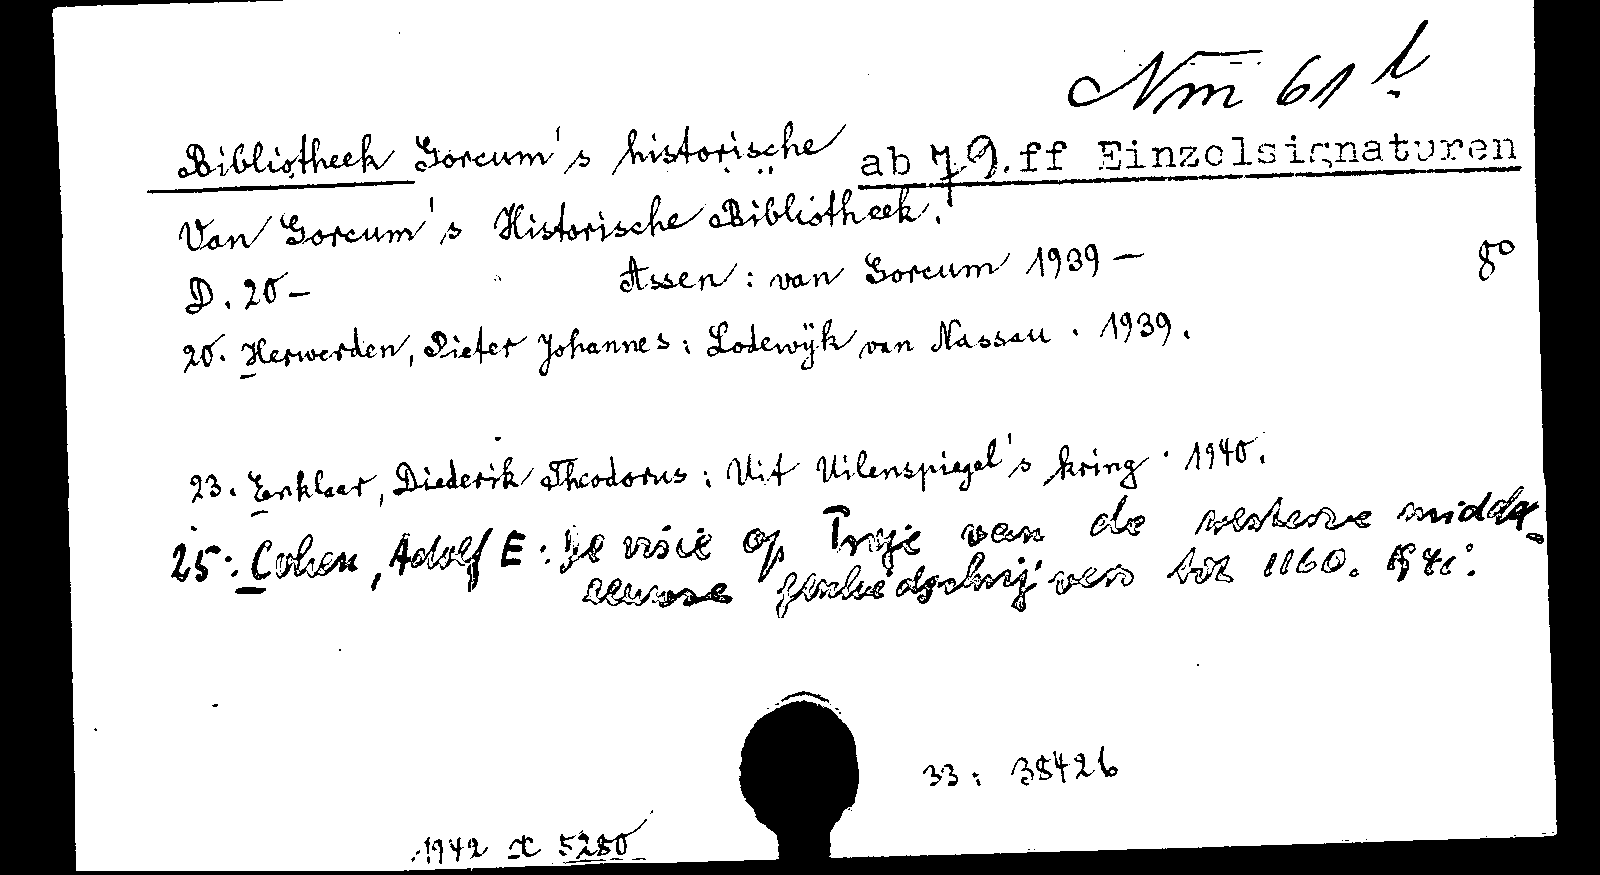 Nm 61 l
Bibliotheek Gorcum's historische
ab 79.ff Einzelsignaturen
Van Gorcum's Historische Bibliotheek.
D. 20- Assen: van Gorcum 1939- 8°
20. Herwerden, Pieter Johannes: Lodewijk van Nassau. 1939.
23. Enklaar, Diederik Theodorus: Uit Uilenspiegel's kring. 1940.
25: Cohen, Adolf E: De visie op Troje van de westerse midde-
eeuwse geschiedschrijvers tot 1160. 1941.
33: 38426
1942 x 5280